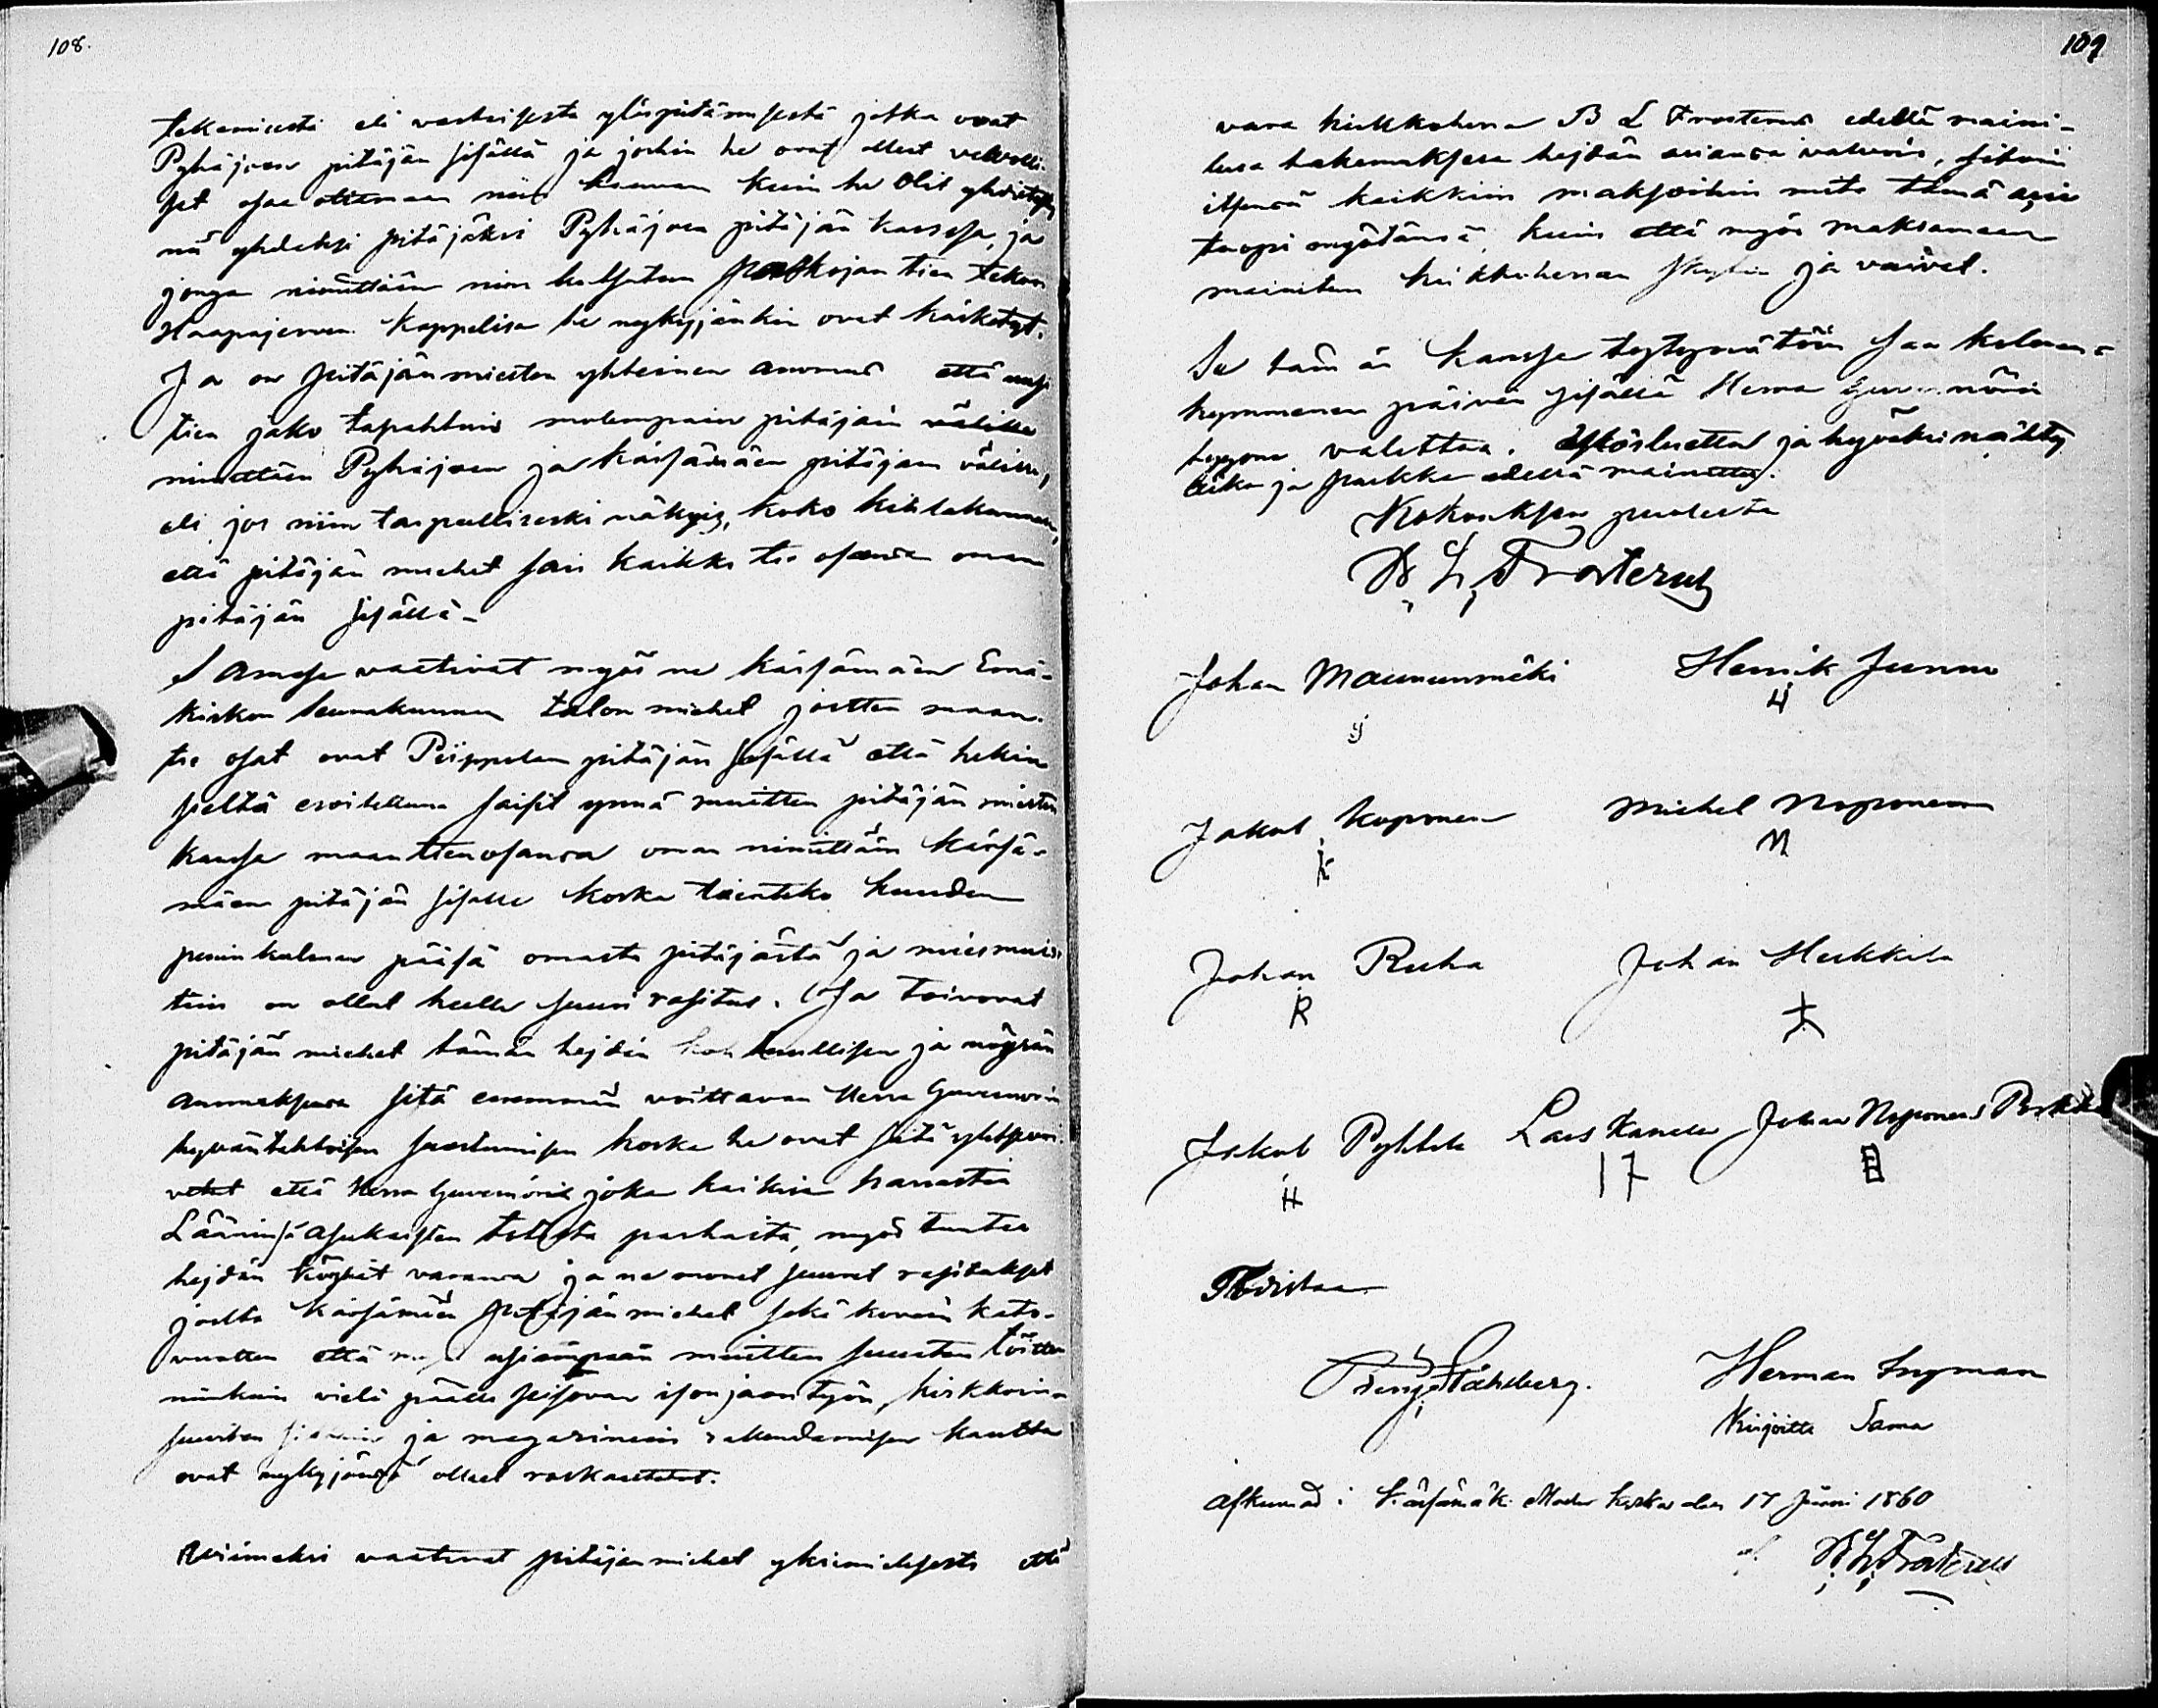 108.
tekemisestä eli vastaisesta ylöspitämisestä jotka ovat
Pyhäjoen pitäjän sisällä ja joihin he ovat olleet velvolli-
set osaa ottamaan niin kauvan kuin he olit yhdistetty
nä yhdeksi pitäjäksi Pyhäjoen pitäjän kanssa, ja
jonga nimittäin niin kutsutun tien tekoon
Haapajerven Kappelissa he nykyjänkin ovat käsketyt.
Ja on pitäjänmiesten yhteinen anomus että uusi
tien jako tapahtuis molempain pitäjäin välillä
nimittäin Pyhäjoen ja Kärsämäen pitäjäin välillä,
eli jos niin tarpeelliseski näkyis, koko kihlakunnan,
että pitäjän miehet sais kaikki tie osansa oman
pitäjän sisällä –
Samasa vaativat myös ne Kärsämäen Emä-
kirkon seurakunnan talon miehet joitten maan-
tie osat ovat Piippolan pitäjän sisällä että hekin
sieltä eroitettuna saisit ynnä muitten pitäjän miesten
kanssa maantienosansa oman nimittäin Kärsä-
mäen pitäjän sisälle koska tienteko kuuden
peninkulman pääsä omasta pitäjästä ja miesmuis-
tiin on ollut heille suuri rasitus. Ja toivovat
pitäjän miehet tämän hejdän kohtuullisen ja nöyrän
anomuksensa sitä enemmän voittavan Herra Guvernörin
hyväntahtoisen suostumisen koska he ovat sitä
että Herra Guvernöri joka kaikin
Lääninsä asukaisten totista parhaita, myös tuntee
hejdän köyhät varansa ja ne monet suuret rasitukset
joilla Kärsämäen pitäjänmiehet sekä kovain kato-
vuotten että usiampain muitten suurten töitten
niinkuin vielä päälle seisovan isonjaon työn, kirkkoin-
suurten ja magasinein rakendamisen kautta
ovat nykyjänsä olleet raskautetut.
Wiimeksi vaativat pitäjänmiehet yksimielisesti että
109
vara kirkkoherra B L Frosterus edellä maini-
tusa hakemuksesa hejdän asiansa valvois, sitoin
itsensä kaikkiin maksoihin mitä tämä asia
tuopi myötänsä, kuin että myös maksamaan
mainitun kirkkoherran ja vaivat.
Se tähän kanssa tyytymätöin saa kolmen-
kymmenen päivän sisällä Herra Guvernörin
tygönä valittaa. Ylösluettu ja hyväksi nähty
aika ja paikka edellä mainittu.
Kokouksen puolesta
B. L. Frosterus
Johan Maununmäki Henrik Junno
Jakob Koponen Michel Noponen
K N
Johan Ruha Johan Heikkilä
R
Jakob Pyhlta Lars Kanala Johan Noponens Perttula
H 17
Todistaa
BengtStåhlberg. Herman Ingman
Kirjoitta Sama
Afkunnad i Kärsämäki Moder kyrka den 17 Juni 1860
af B. L. Frosterus